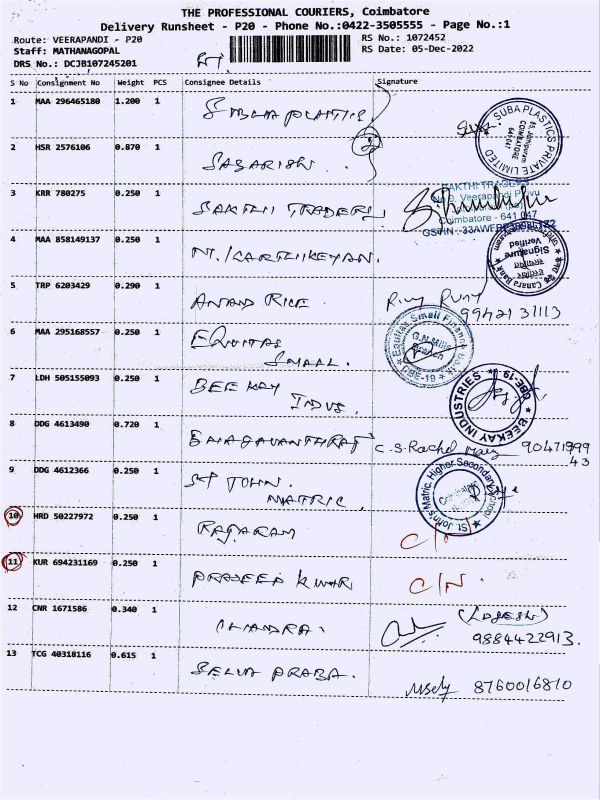 THE PROFESSIONAL COURIERS, Coimbatore
Delivery Runsheet - P20 - Phone No.:0422-3505555 - Page No.:1
Route: VEERAPANDI - P20
RS No.: 1072452
Staff: MATHANAGOPAL
RS Date: 05-Dec-2022
DRS No.: DCJB107245201
S No Consignment No Weight PCS Consignee Details Signature
1 MAA 296465180 1.200 1 SUBHA PLASTIC
SUBA PLASTICS PRIVATE LIMITED
COIMBATORE
641 047
2 HSR 2576106 0.870 1 SABARISH
3 KRR 780275 0.250 1 SAKTHI TRADERS
SAKTHI TRADERS
Coimbatore - 641 047
4 MAA 858149137 0.250 1 M. KARTHIKEYAN.
Canara Bank
Signature
Verified
5 TRP 6203429 0.290 1 ANAND RICE
99421 31113
6 MAA 295168557 0.250 1 EQUITAS
SMAAL.
Equitas Small Finance Bank
G.N.Mills
Branch
CBE-19
7 LDH 505155093 0.250 1 BEE KAY
INDUS.
BEEKAY INDUSTRIES
CBE-19
8 DDG 4613490 0.720 1 BHAGAVANTHRAJ C.S. Rachel Mary 90471999
43
9 DDG 4612366 0.250 1 ST JOHN.
MATRIC.
St. John's Matric. Higher Secondary School
Coimbatore
10 HRD 50227972 0.250 1 RAJARAM
11 KUR 694231169 0.250 1 PRADEEP KUMAR C/N.
12 CNR 1671586 0.340 1 CHANDRA. (LOGESH)
9884422913.
13 TCG 40318116 0.615 1 SELVA PRABA.
8760016810